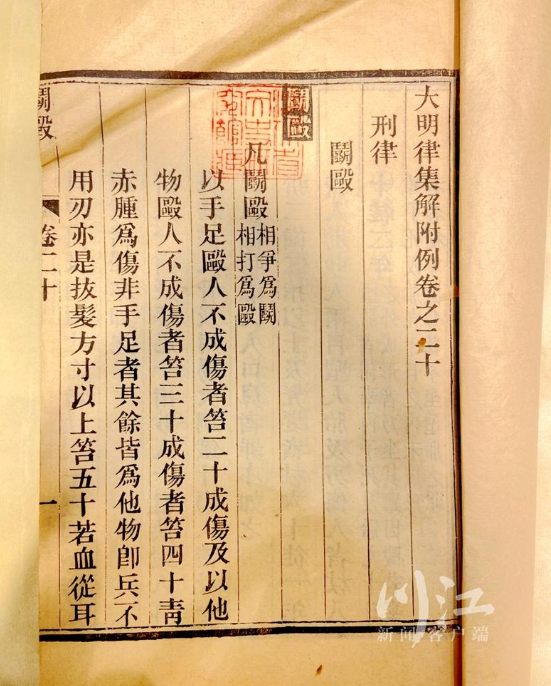 大明律集解附例卷之二十
刑律
鬭毆
鬭毆
凡鬭毆相爭爲鬭相打爲毆
以手足毆人不成傷者笞二十成傷及以他
物毆人不成傷者笞三十成傷者笞四十靑
赤腫爲傷非手足者其餘皆爲他物卽兵不
用刃亦是拔髮方寸以上笞五十若血從耳
鬭毆
卷二十
一
川江
新闻客户端